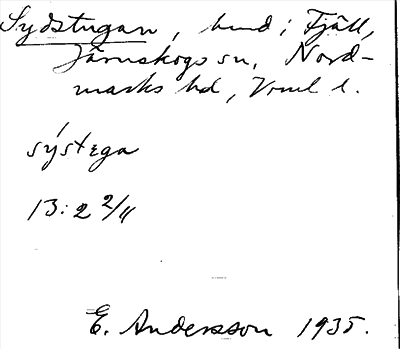 Sydstugan, hmd i Fjäll,
Järnskogs sn, Nord-
marks hd, Vrml l.
sýstega
13:2 2/11
E. Andersson 1935.